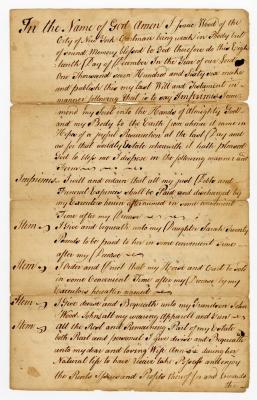 In the Name of God Amen I Isaac Wood of the
City of New York Coachman being weak in Body but
of sound Memory blessed be God therefore do this Eigh
teenth Day of December In the Year of our Lord
One Thousand seven Hundred and Sixty six make
and publish this my last Will and Testament in
manner following that is to say Imprimis I com
mend my Soul into the Hands of Almighty God
and my Body to the Earth from whence it came in
Hopes of a joyful Resurrection at the last Day and
as for that worldly Estate wherewith it hath pleased
God to bless me I dispose in the following manner and
Form
Imprimis I will and ordain that all my just Debts and
Funeral Expences shall be Paid and discharged by
my Executors herein afternamed in some convenient
Time after my Decease
Item I Give and bequeath unto my Daughter Sarah Twenty
Pounds to be paid to her in some convenient Time
after my Decease
Item I Order and Direct that my Horse and to be sold
in some Convenient Time after my Decease by my
Executors hereafter named
Item I Give devise and Bequeath unto my Grandson John
Wood Johns all my wearing Apparell and
Item All the Rest and Remaining Part of my Estate
both Real and personal I give devise and Bequeath
unto my dear and loving Wife during her
Natural life to have receive take Possess and enjoy
the Rents Issues and Profits thereof for and towards